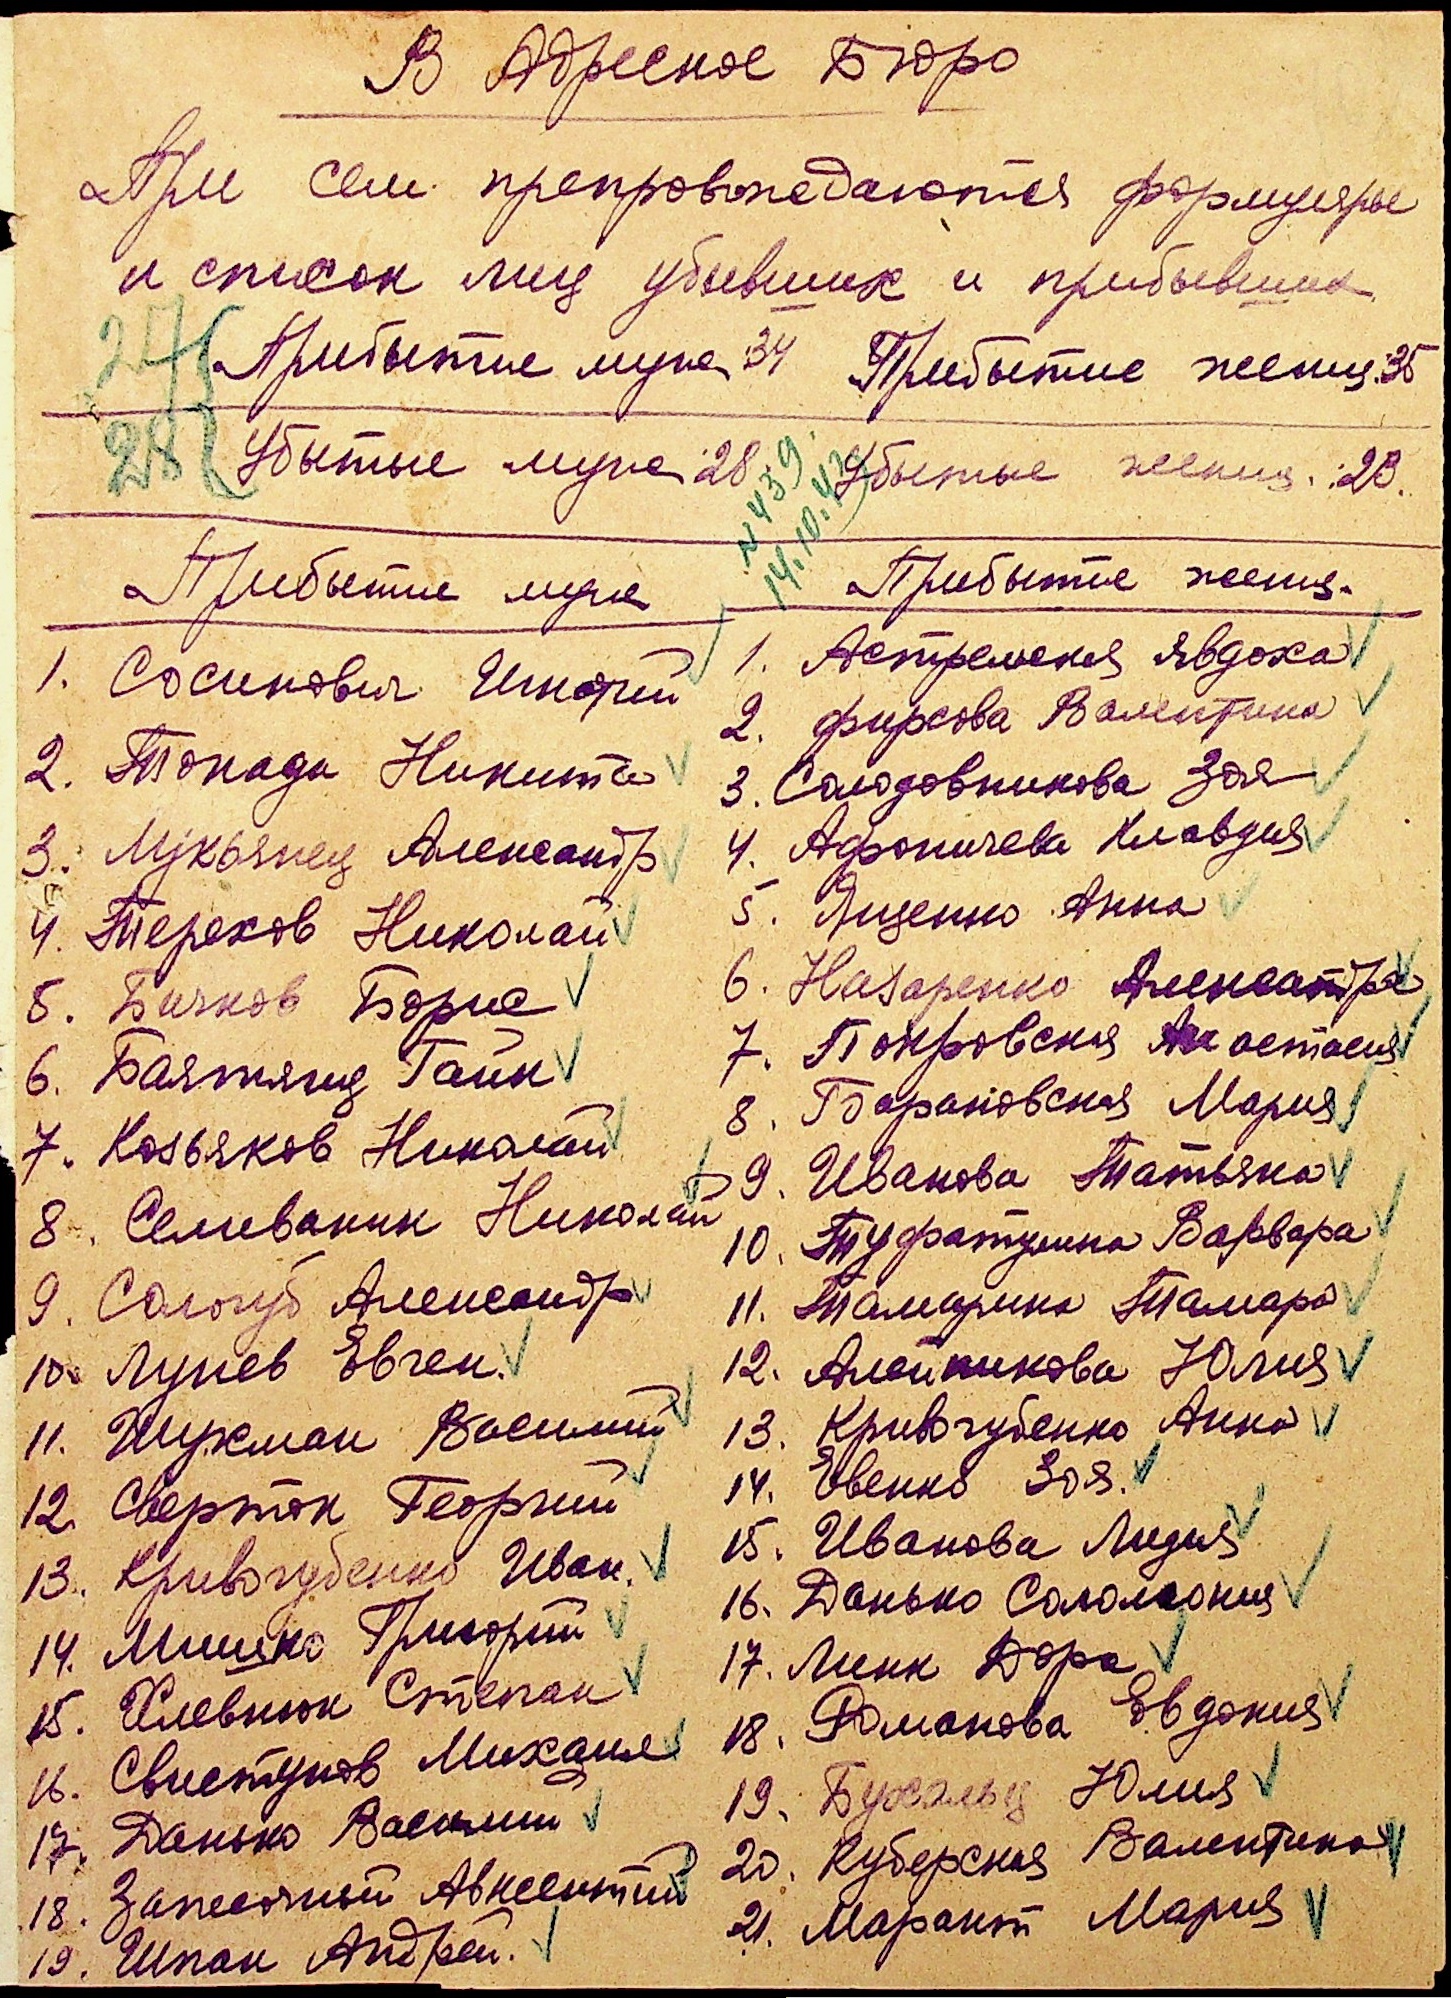 В Адресное Бюро
При сем препровождаются формуляры
и список лиц убывших и прибывших
27{ Прибытие муж. 34 Прибытие женщ. 35
28{ Убытые муж. 28. Убытые женщ. : 23.
№ 439
14.10.42
Прибытие муж
1. Сосинович Григорий
2. Топада Никита
3. Лукьянец Александр
4. Терехов Николай
5. Бычков Борис
6. Баятянц Гайк
7. Козьяков Николай
8. Селиваник Николай
9. Сологуб Александр
10. Лунев Евген.
11. Шухман Василий
12. Сверток Георгий
13. Кривогубенко Иван.
14. Мишко Григорий
15. Хлевнюк Степан
16. Свистунов Михаил
17. Данько Василий
18. Запесочный Авксентий
19. Шпак Андрей.
Прибытие женщ.
1. Астрельская Явдоха
2. Фирсова Валентина
3. Солодовникова Зоя
4. Афоничева Клавдия
5. Яценко Анна
6. Назаренко Александра
7. Покровская Анастасия
8. Барановская Мария
9. Иванова Татьяна
10. Туфатулина Варвара
11. Тамарина Тамара
12. Алейникова Юлия
13. Кривогубенко Анна
14. Евенко Зоя.
15. Иванова Лидия
16. Данько Соломония
17. Линк Дора
18. Романова Евдокия
19. Бухольц Юлия
20. Куберская Валентина
21. Марант Мария